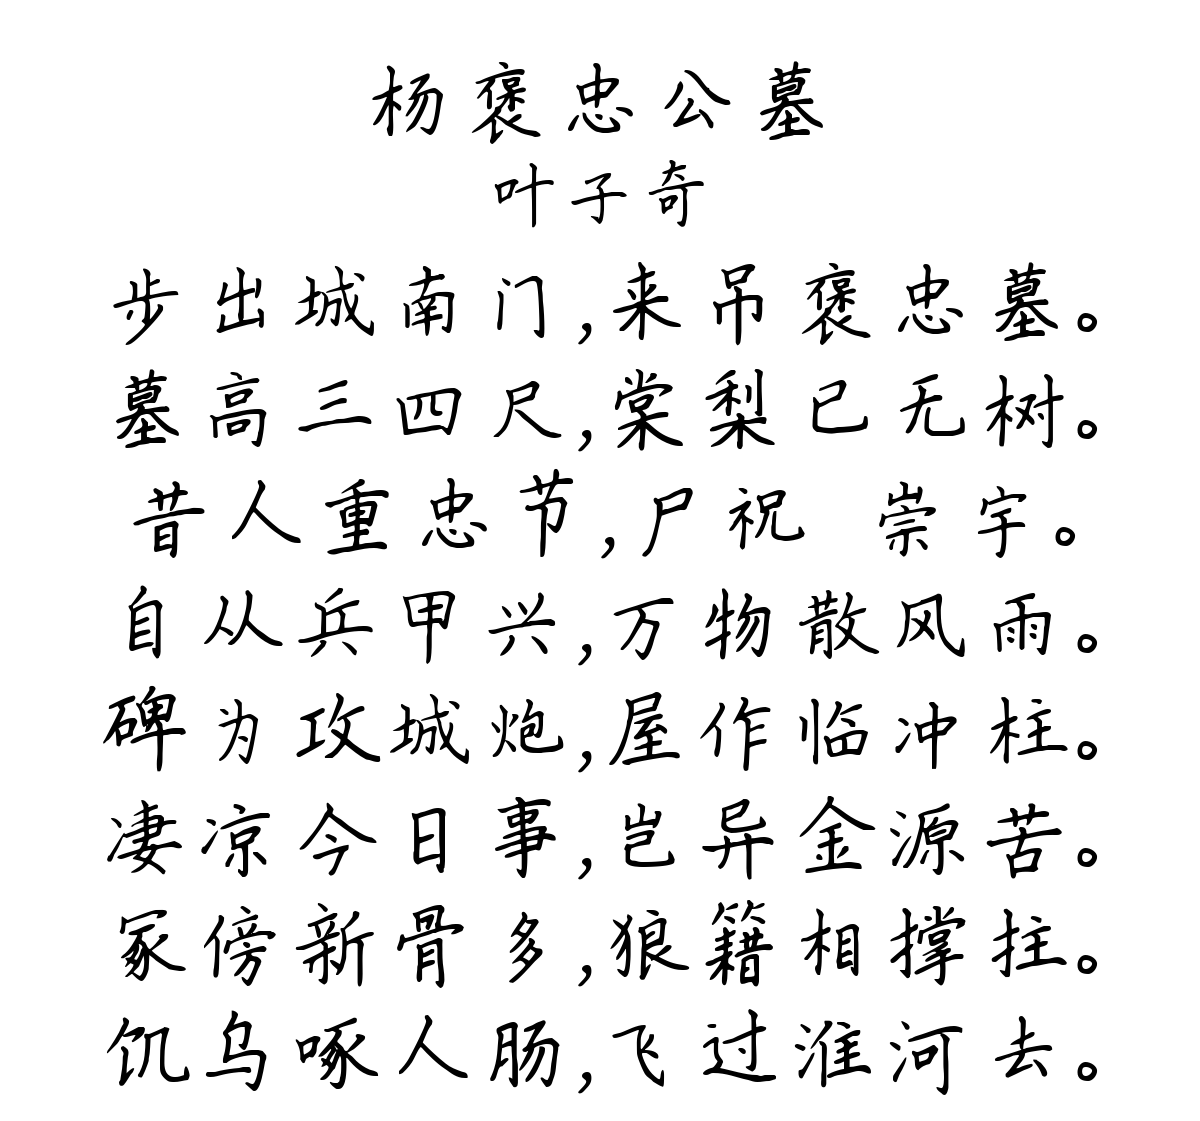 杨褒忠公墓
叶子奇
步出城南门,来吊褒忠墓。
墓高三四尺,棠梨已无树。
昔人重忠节,尸祝 崇宇。
自从兵甲兴,万物散风雨。
碑为攻城炮,屋作临冲柱。
凄凉今日事,岂异金源苦。
冢傍新骨多,狼籍相撑拄。
饥乌啄人肠,飞过淮河去。